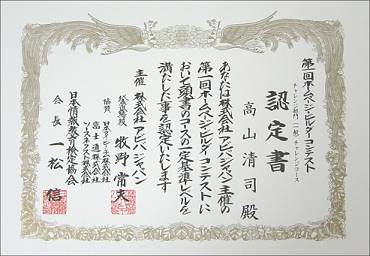 第一回ホームページ・ビルダーコンテスト
チャレンジ部門(一般)チャレンジコース
認定書
高山清司 殿
あなたは株式会社アビバジャパン主催の
第一回ホームページ・ビルダーコンテストに
おいて頭書のコースの一定基準レベルを
満たした事を認定いたします
主催 株式会社アビバジャパン
牧野常夫
協賛
富士通株式会社
ソースネクスト株式会社
日本情報教育検定協会
会長 一松 信